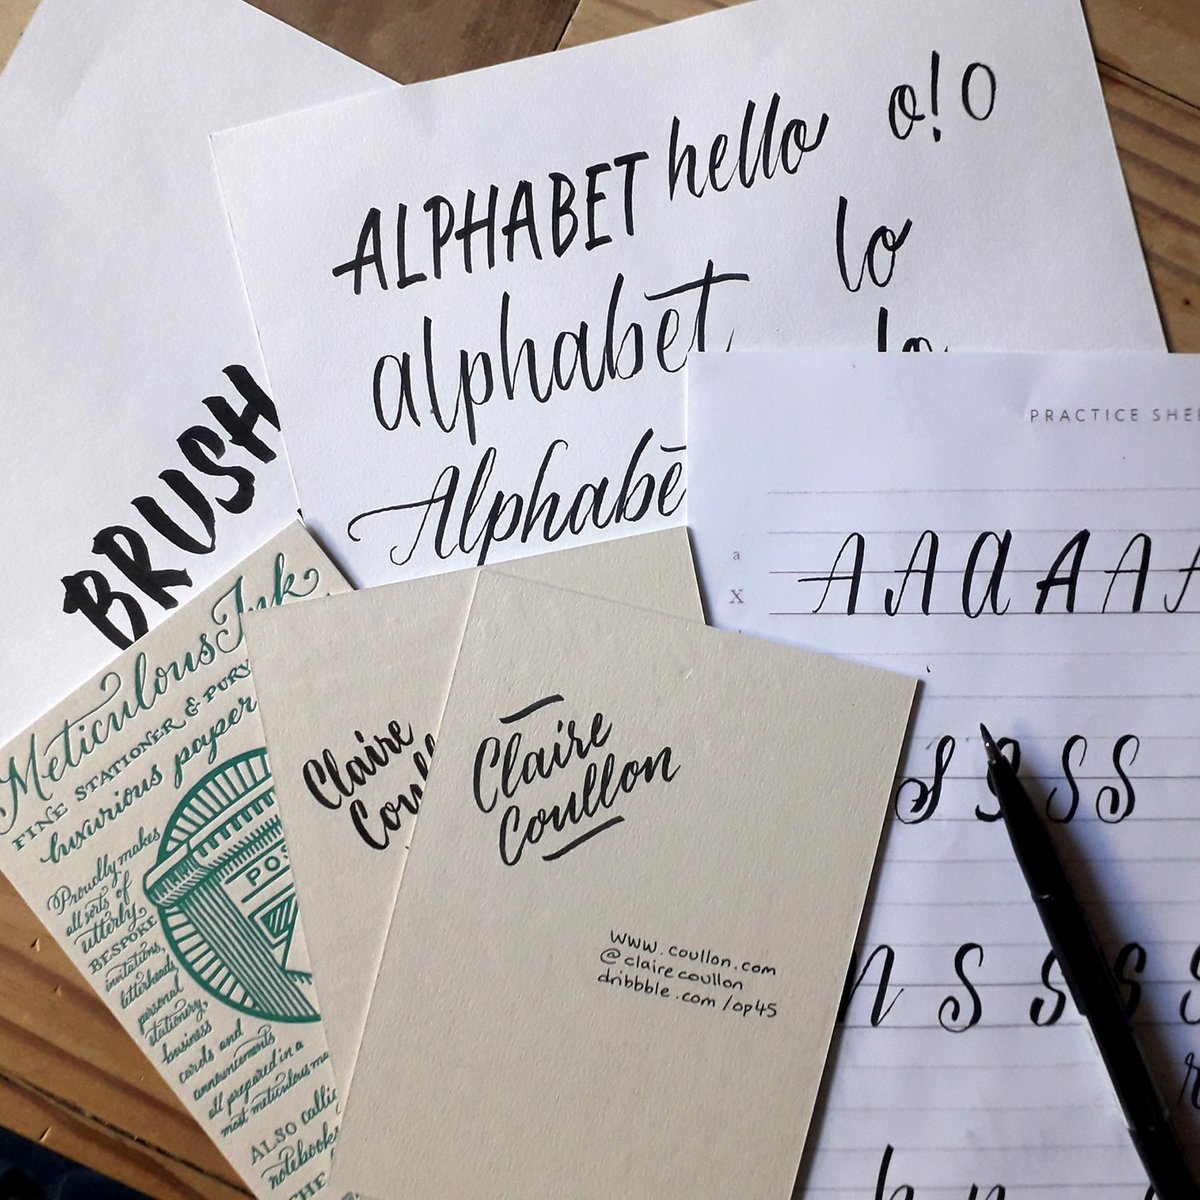 ALPHABET hello o!O
alphabet lo
Alphabet lo
BRUSH
PRACTICE
a
X
A A a A A A
S S S S
n S S S S
Meticulous Ink
FINE STATIONER & PURV
luxurious paper
Proudly makes
all sorts of
utterly
BESPOKE
invitations,
letterheads,
personal
stationery,
business
cards and
announcements
all prepared in a
most meticulous
ALSO
notebooks
THE
POS
Claire
Coull
Claire
Coullon
www.coullon.com
@clairecoullon
dribbble.com/op45